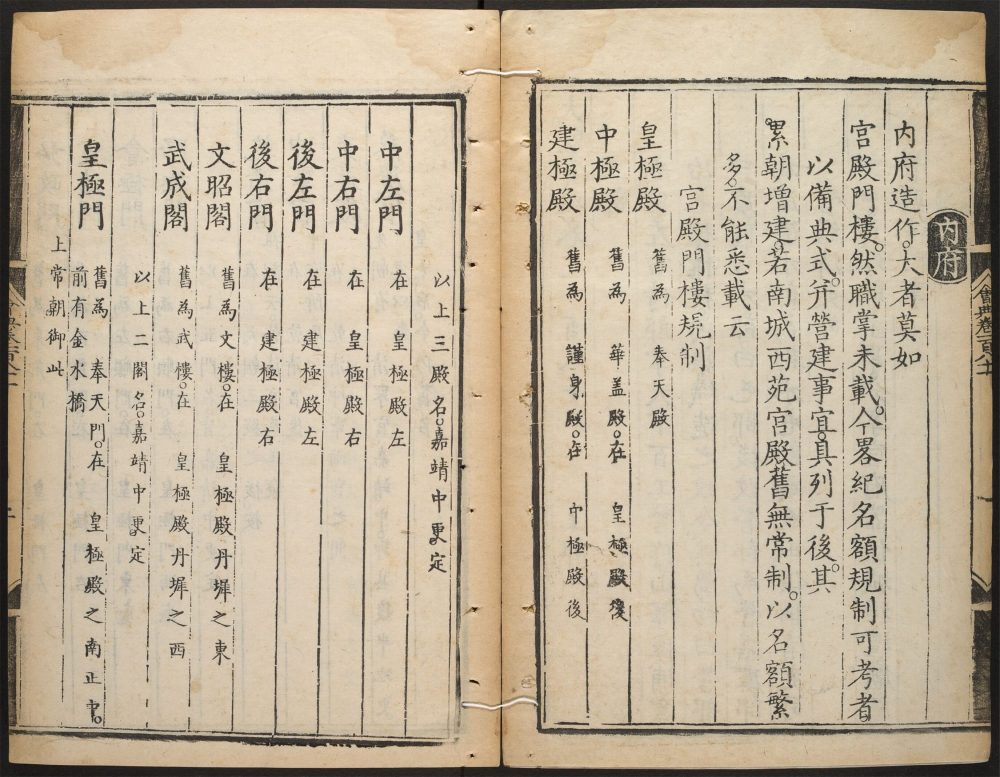 內府
內府造作。大者莫如
宮殿門樓。然職掌未載。今畧紀名額規制可考者
以備典式。并營建事宜。具列于後。其
累朝增建。若南城西苑宮殿舊無常制。以名額繁
多。不能悉載云
宮殿門樓規制
皇極殿 舊為 奉天殿
中極殿 舊為 華盖殿。在 皇極殿後
建極殿 舊為 謹身殿。在 中極殿後
以上三殿名。嘉靖中更定
中左門 在 皇極殿左
中右門 在 皇極殿右
後左門 在 建極殿左
後右門 在 建極殿右
文昭閣 舊為文樓。在 皇極殿丹墀之東
武成閣 舊為武樓。在 皇極殿丹墀之西
以上二閣名。嘉靖中更定
皇極門 舊為 奉天門。在 皇極殿之南正中。
前有金水橋
上常朝御此